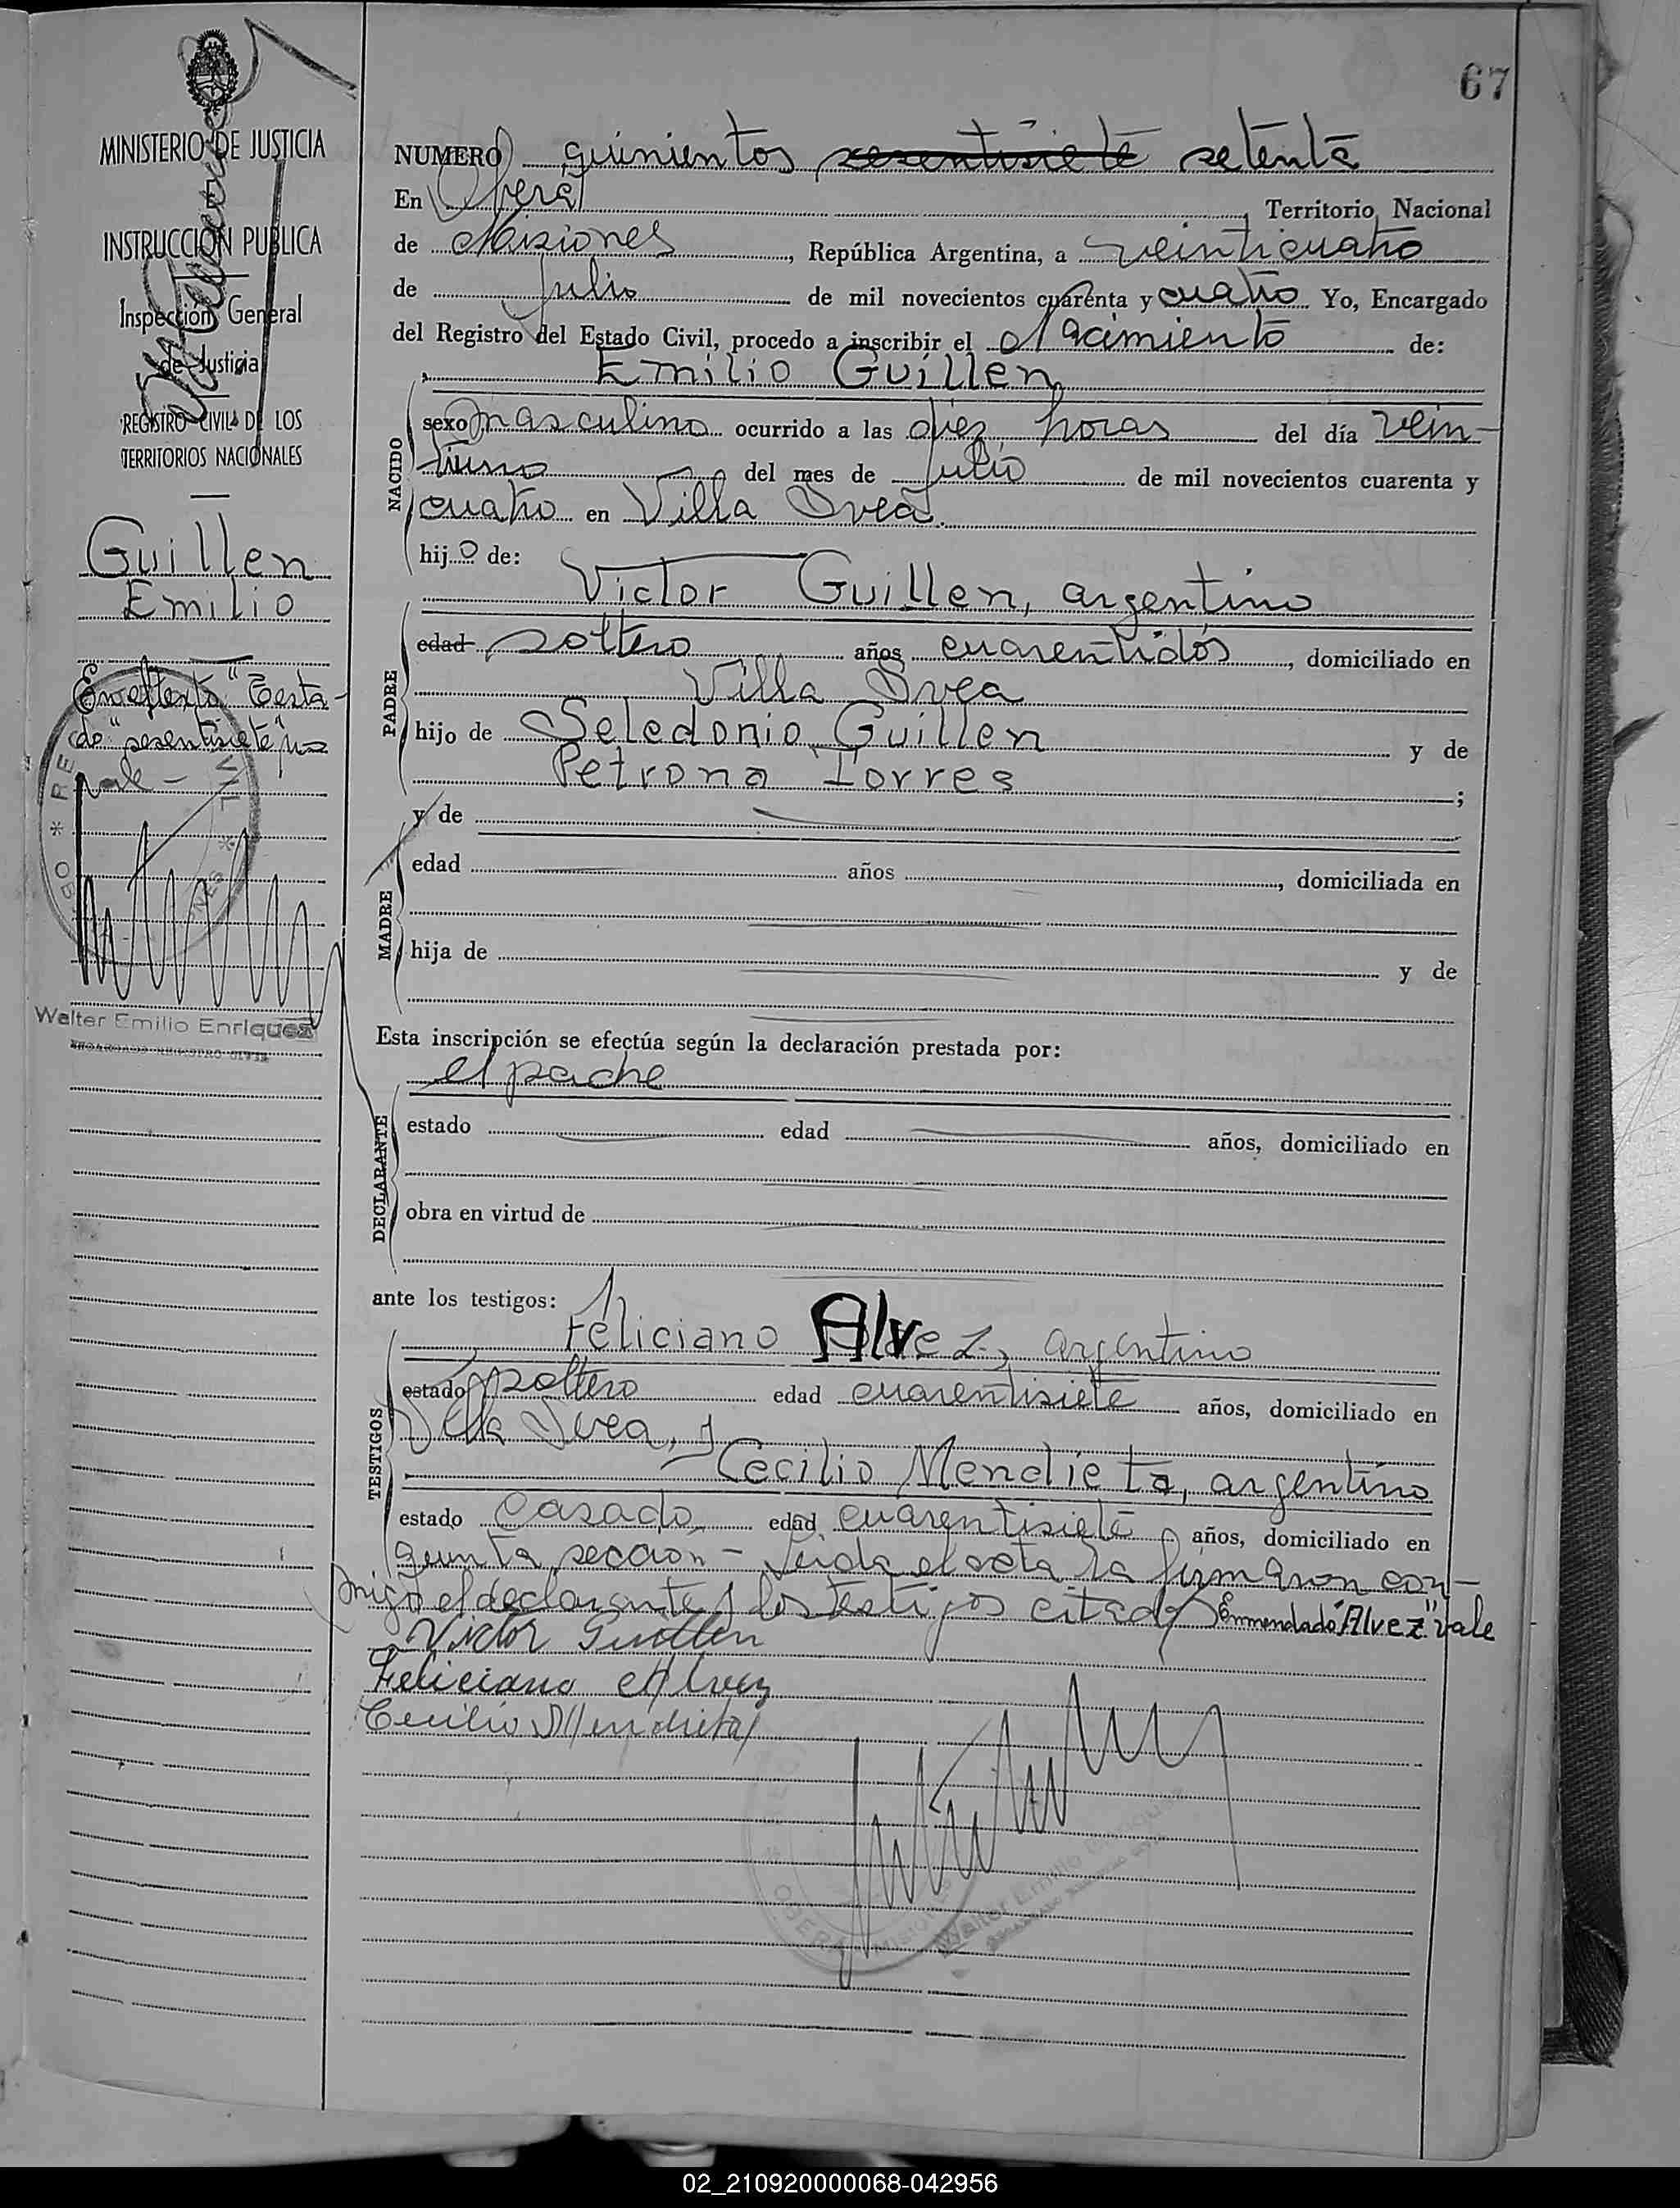 67
MINISTERIO DE JUSTICIA
INSTRUCCION PUBLICA
Inspección General
de Justicia
REGISTRO CIVIL DE LOS
TERRITORIOS NACIONALES
Guillen
Emilio
En el texto "Testa-
do "sesentisiete" no
vale -
Walter Emilio Enriquez
ENCARGADO REGISTRO CIVIL
NUMERO quinientos sesentisiete setenta
En Oberá, Territorio Nacional
de Misiones, República Argentina, a veinticuatro
de julio de mil novecientos cuarenta y cuatro Yo, Encargado
del Registro del Estado Civil, procedo a inscribir el Nacimiento de:
Emilio Guillen
NACIDO
sexo masculino ocurrido a las diez horas del día vein-
tiuno del mes de julio de mil novecientos cuarenta y
cuatro en Villa Svea.
hijo de:
Victor Guillen, argentino
PADRE
edad soltero años cuarentidós, domiciliado en
Villa Svea
hijo de Seledonio Guillen y de
Petrona Torres;
y de
MADRE
edad años, domiciliada en
hija de y de
Esta inscripción se efectúa según la declaración prestada por:
el padre
DECLARANTE
estado edad años, domiciliado en
obra en virtud de
ante los testigos:
Feliciano Alvez, argentino
TESTIGOS
estado soltero edad cuarentisiete años, domiciliado en
Villa Svea, y
Cecilio Mendieta, argentino
estado casado edad cuarentisiete años, domiciliado en
quinta sección - Leida el acta la firmaron con-
migo el declarante y los testigos citados Enmendado "Alvez" vale
Victor Guillen
Feliciano Alvez
Cecilio Mendieta
OBERA MISIONES
Walter Emilio Enriquez
02_210920000068-042956